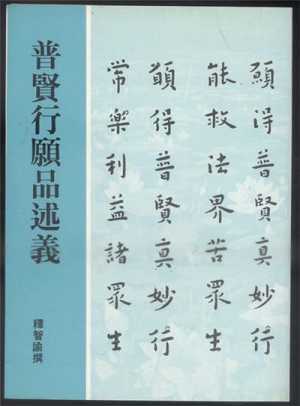 願得普賢真妙行
能救法界苦眾生
願得普賢真妙行
常樂利益諸眾生
普賢行願品述義
釋智諭撰